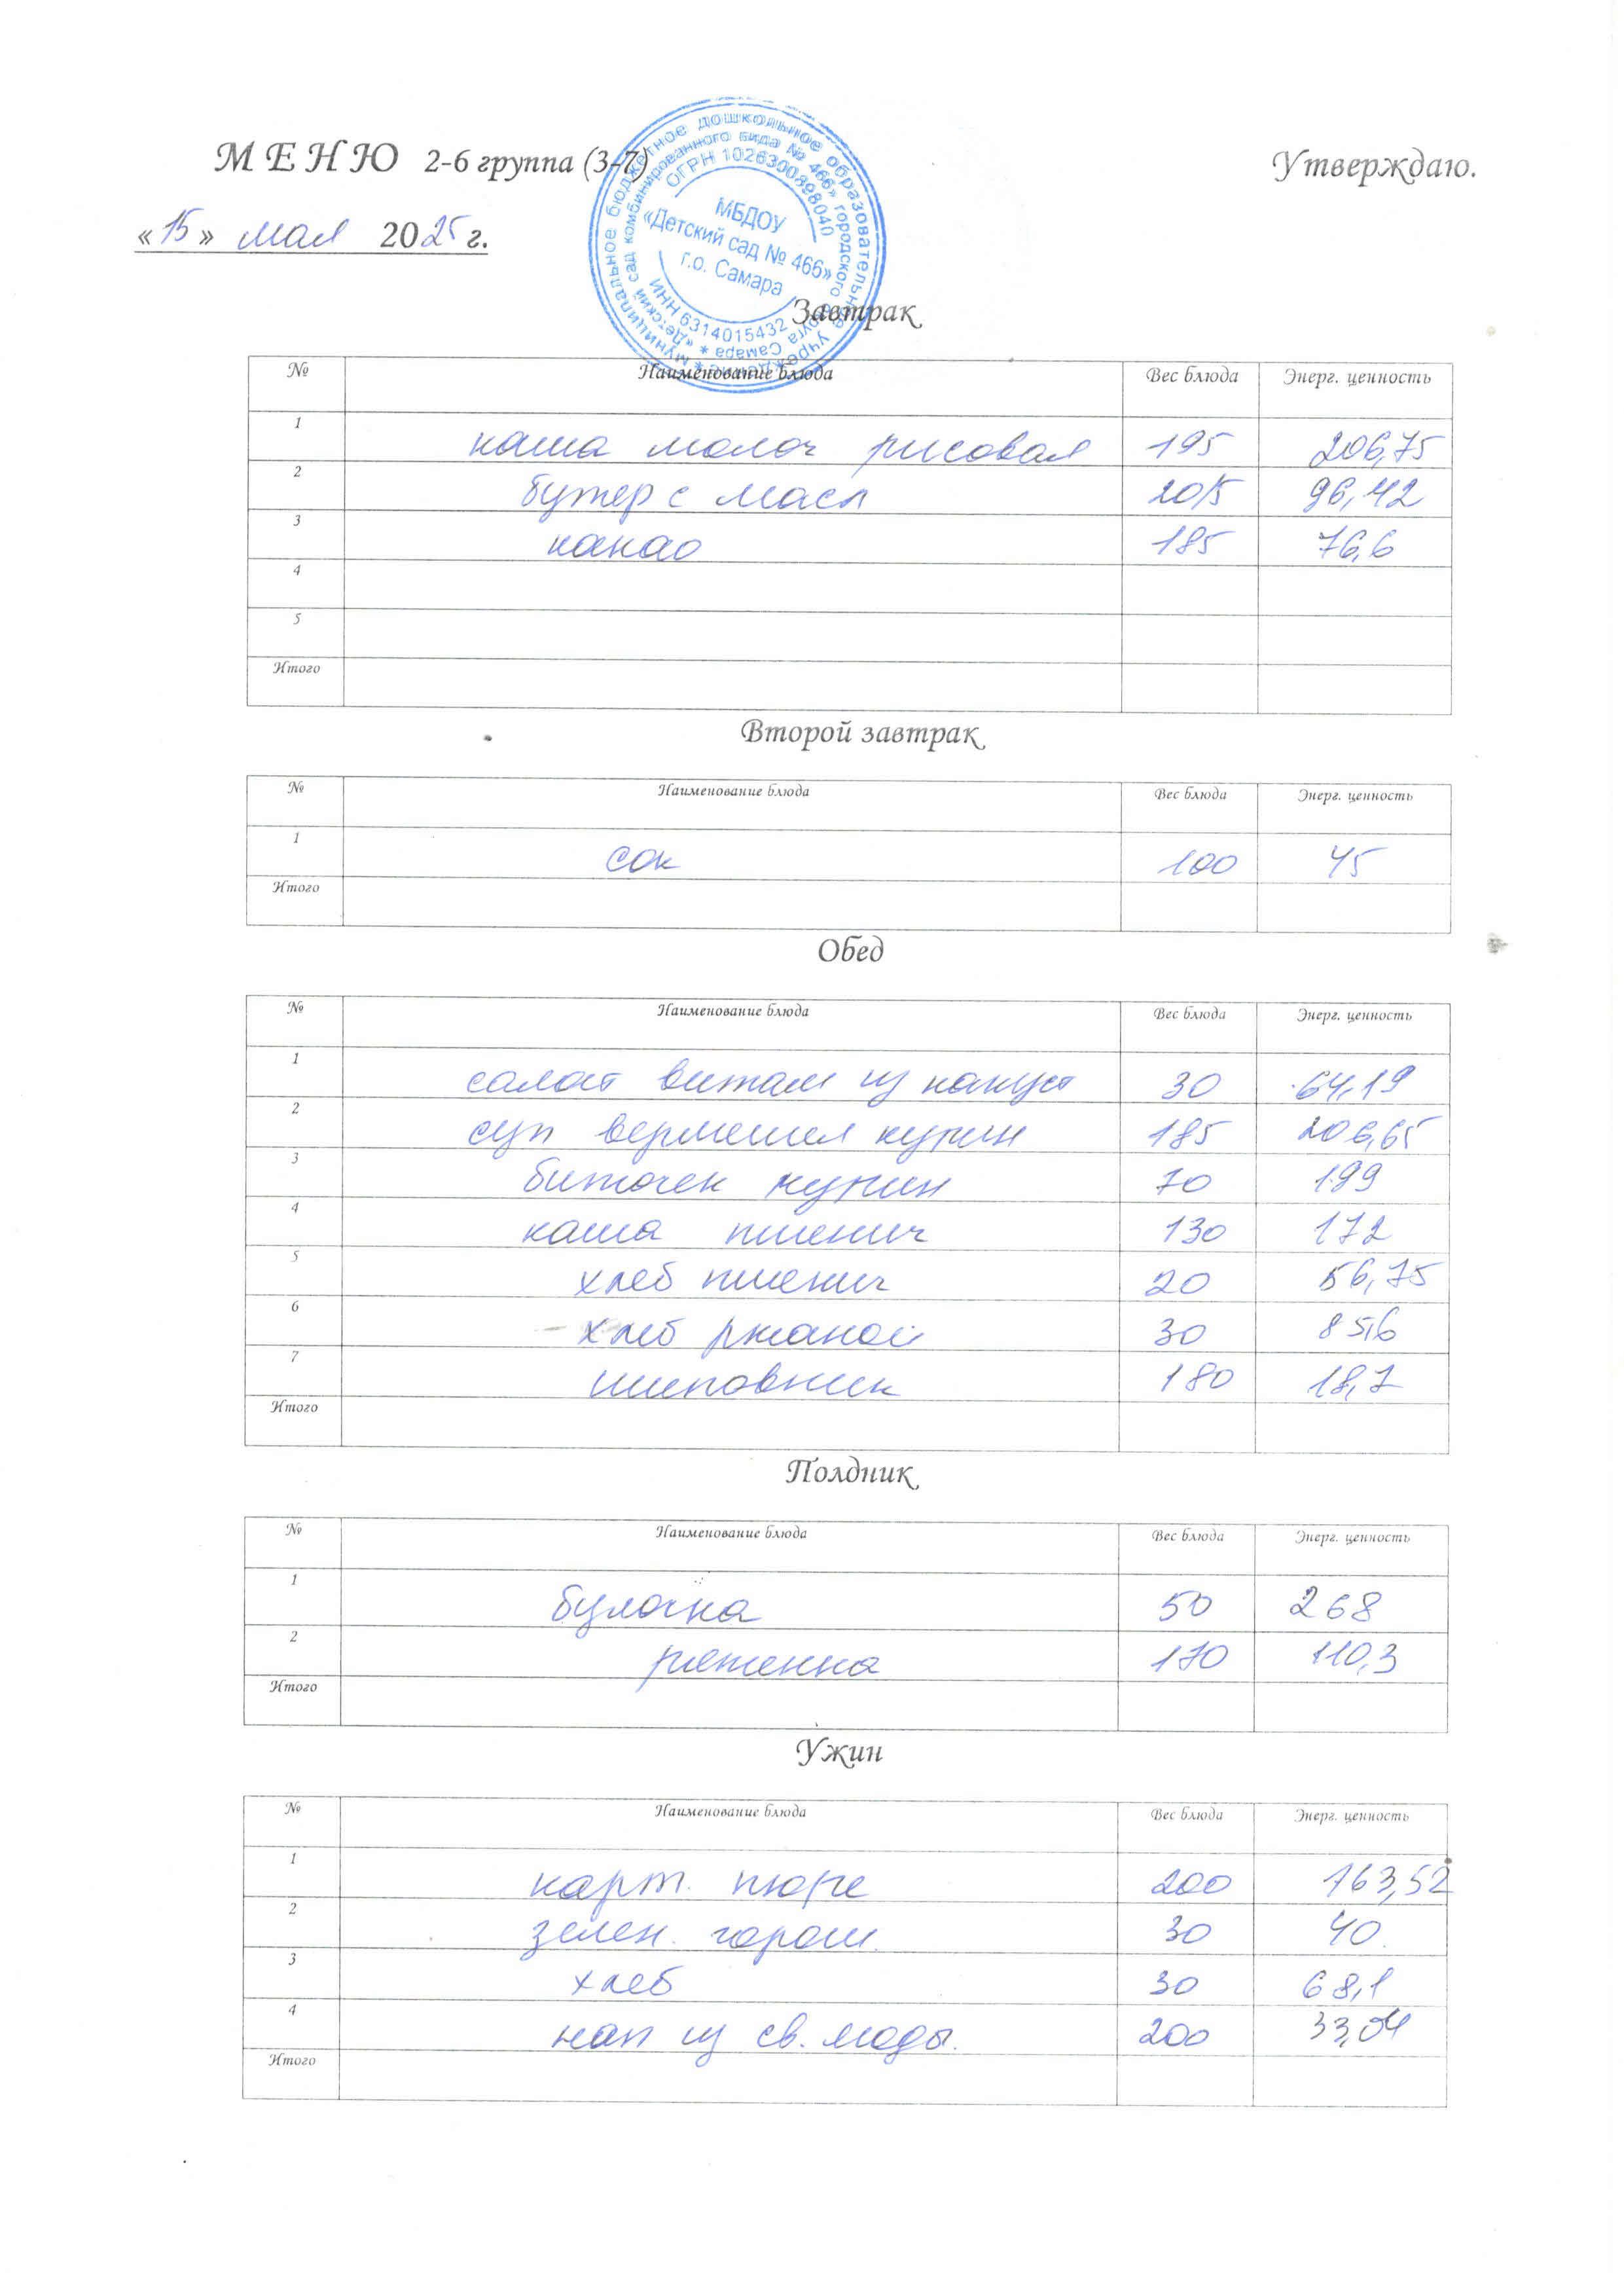 М Е Н Ю 2-6 группа (3-7)
Утверждаю.
«15» мая 2025 г.
муниципальное бюджетное дошкольное образовательное учреждение
«Детский сад комбинированного вида № 466» городского округа Самара
ОГРН 1026300898040
МБДОУ
«Детский сад № 466»
г.о. Самара
ИНН 6314015432
Завтрак
№ Наименование блюда Вес блюда Энерг. ценность
1 каша молоч рисовая 195 206,75
2 бутер с масл 20/5 96,42
3 какао 185 76,6
4
5
Итого
Второй завтрак
№ Наименование блюда Вес блюда Энерг. ценность
1 сок 100 45
Итого
Обед
№ Наименование блюда Вес блюда Энерг. ценность
1 салат витам из капуст 30 64,19
2 суп вермишел курин 185 206,65
3 биточек курин 70 199
4 каша пшенич 130 172
5 хлеб пшенич 20 56,75
6 хлеб ржаной 30 85,6
7 шиповник 180 18,7
Итого
Полдник
№ Наименование блюда Вес блюда Энерг. ценность
1 булочка 50 268
2 ряженка 170 110,3
Итого
Ужин
№ Наименование блюда Вес блюда Энерг. ценность
1 карт. пюре 200 163,52
2 зелен. горош. 30 40
3 хлеб 30 68,1
4 нап из св. 200 33,04
Итого